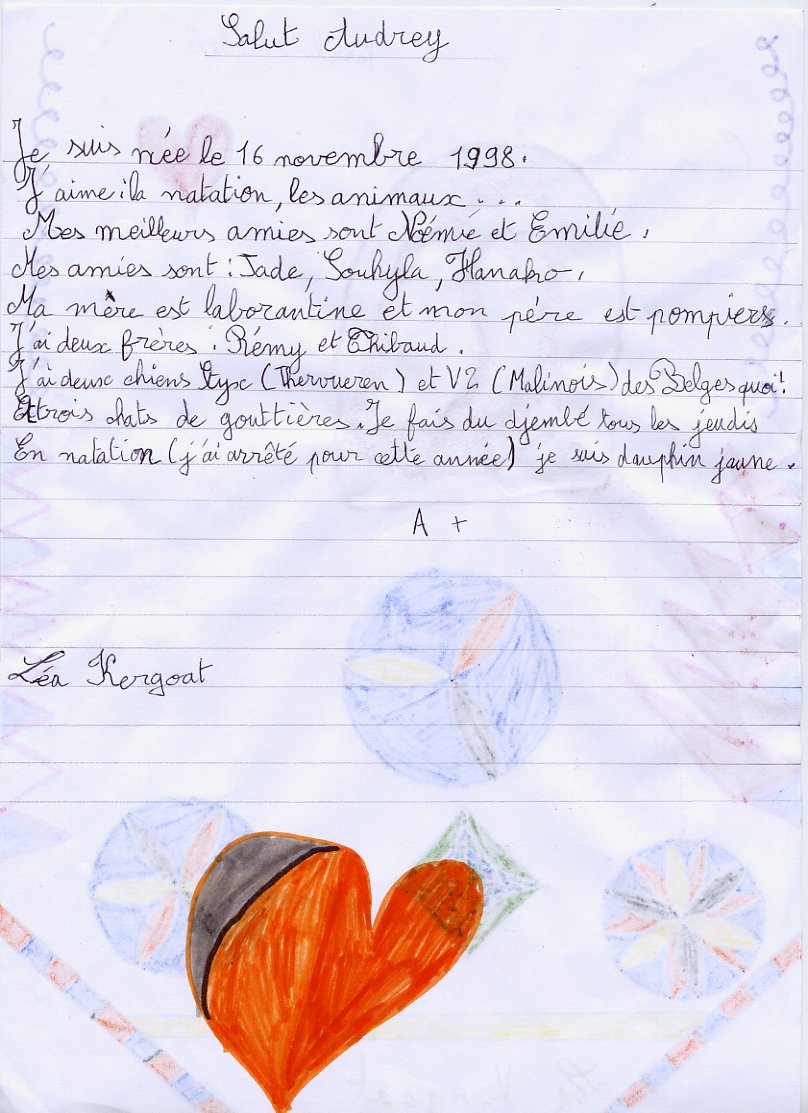 Salut Audrey
Je suis née le 16 novembre 1998.
J'aime : la natation, les animaux ...
Mes meilleurs amies sont Noémie et Emilie.
Mes amies sont : Jade, Souhyla, Hanako.
Ma mère est laborantine et mon père est pompiers.
J'ai deux frères : Rémy et Thibaud.
J'ai deux chiens Styx (Thervueren) et V2 (Malinois) des Belges quoi !
Et trois chats de gouttières. Je fais du djembé tous les jeudis
En natation (j'ai arrêté pour cette année) je suis dauphin jaune.
A +
Léa Kergoat